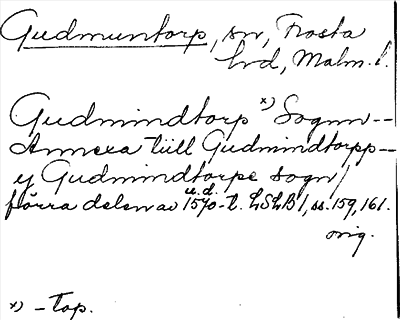 Gudmuntorp, sn, Frosta
hd, Malm. l.
Gudmindtorp x) Sognn--
Annexa tiill Gudmindtorpp--
y Gudmindtorpe sogn/
förra delen av u.d. 1570-t. LSLB 1, ss. 159, 161.
orig.
x) -top.